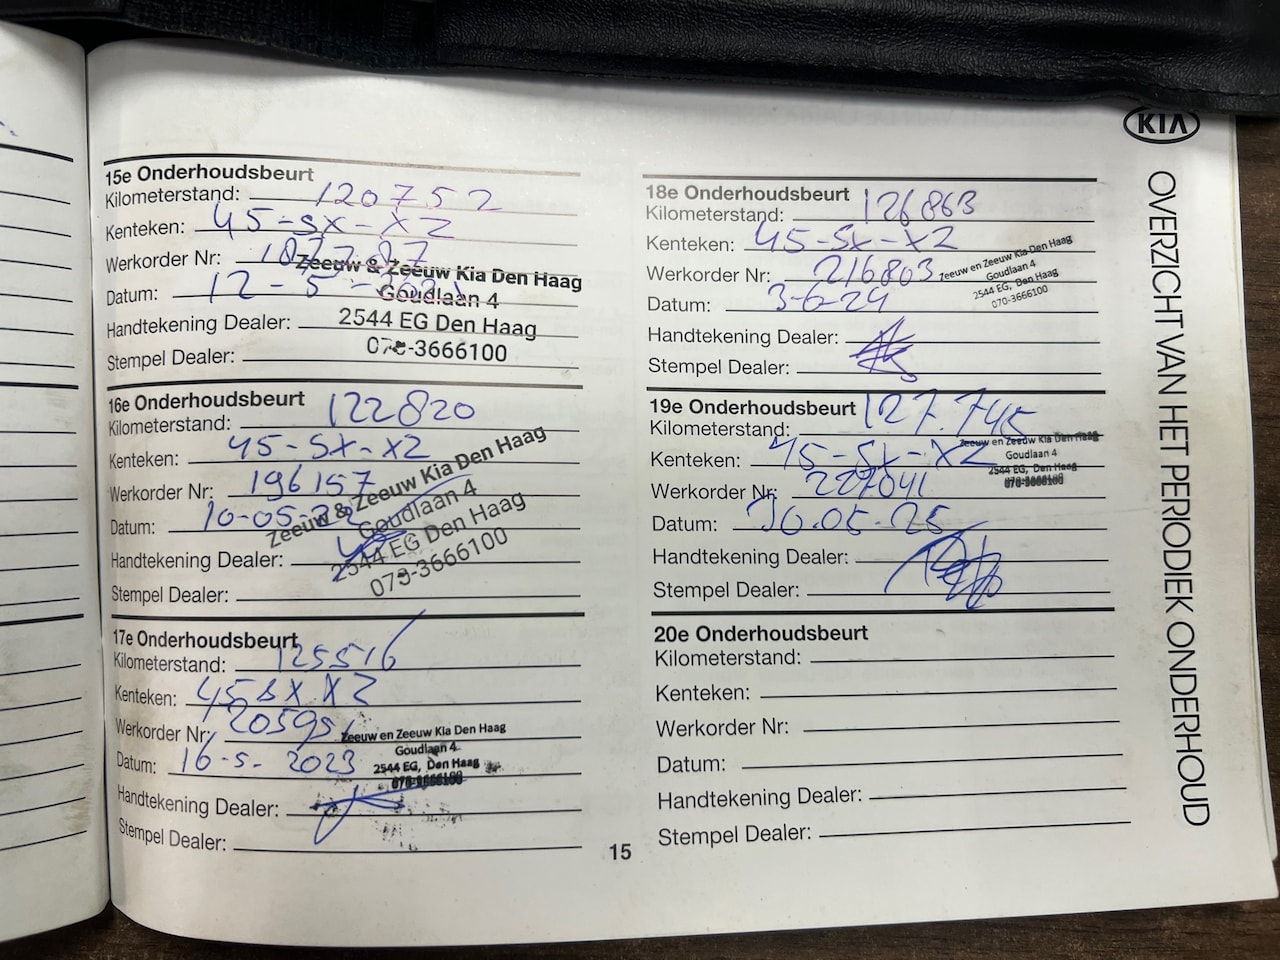 KIA
OVERZICHT VAN HET PERIODIEK ONDERHOUD
15e Onderhoudsbeurt
Kilometerstand: 120752
Kenteken: 45-SX-XZ
Werkorder Nr:
Zeeuw & Zeeuw Kia Den Haag
Datum: 12-5-
Goudlaan 4
Handtekening Dealer:
2544 EG Den Haag
Stempel Dealer:
070-3666100
16e Onderhoudsbeurt
Kilometerstand: 122820
Kenteken: 45-SX-XZ
Werkorder Nr: 196157
Zeeuw & Zeeuw Kia Den Haag
Datum: 10-05-22
Goudlaan 4
Handtekening Dealer:
2544 EG Den Haag
070-3666100
Stempel Dealer:
17e Onderhoudsbeurt
Kilometerstand: 125516
Kenteken: 45 SX XZ
Werkorder Nr:
Zeeuw en Zeeuw Kia Den Haag
Goudlaan 4
Datum: 16-5-2023
2544 EG, Den Haag
070-3666100
Handtekening Dealer:
Stempel Dealer:
18e Onderhoudsbeurt
Kilometerstand: 126863
Kenteken: 45-SX-XZ
Werkorder Nr: 216803
Zeeuw en Zeeuw Kia Den Haag
Goudlaan 4
2544 EG, Den Haag
070-3666100
Datum: 3-6-24
Handtekening Dealer:
Stempel Dealer:
19e Onderhoudsbeurt
Kilometerstand: 127.745
Kenteken: 45-SX-XZ
Zeeuw en Zeeuw Kia Den Haag
Goudlaan 4
2544 EG, Den Haag
070-3666100
Werkorder Nr: 227041
Datum:
Handtekening Dealer:
Stempel Dealer:
20e Onderhoudsbeurt
Kilometerstand:
Kenteken:
Werkorder Nr:
Datum:
Handtekening Dealer:
Stempel Dealer:
15